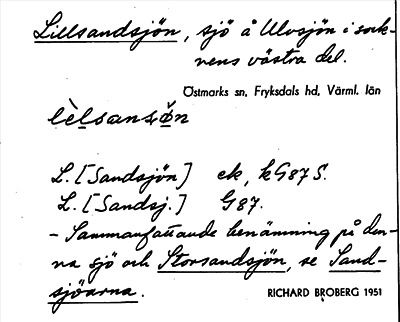 Lillsandsjön, sjö å Ulvsjön i sock-
nens västra del.
Östmarks sn, Fryksdals hd, Värml. län
L. [Sandsjön] ek, kG87S.
L. [Sandsj.] G87.
– Sammanfattande benämning på den-
na sjö och Storsandsjön, se Sand-
sjöarna.
RICHARD BROBERG 1951